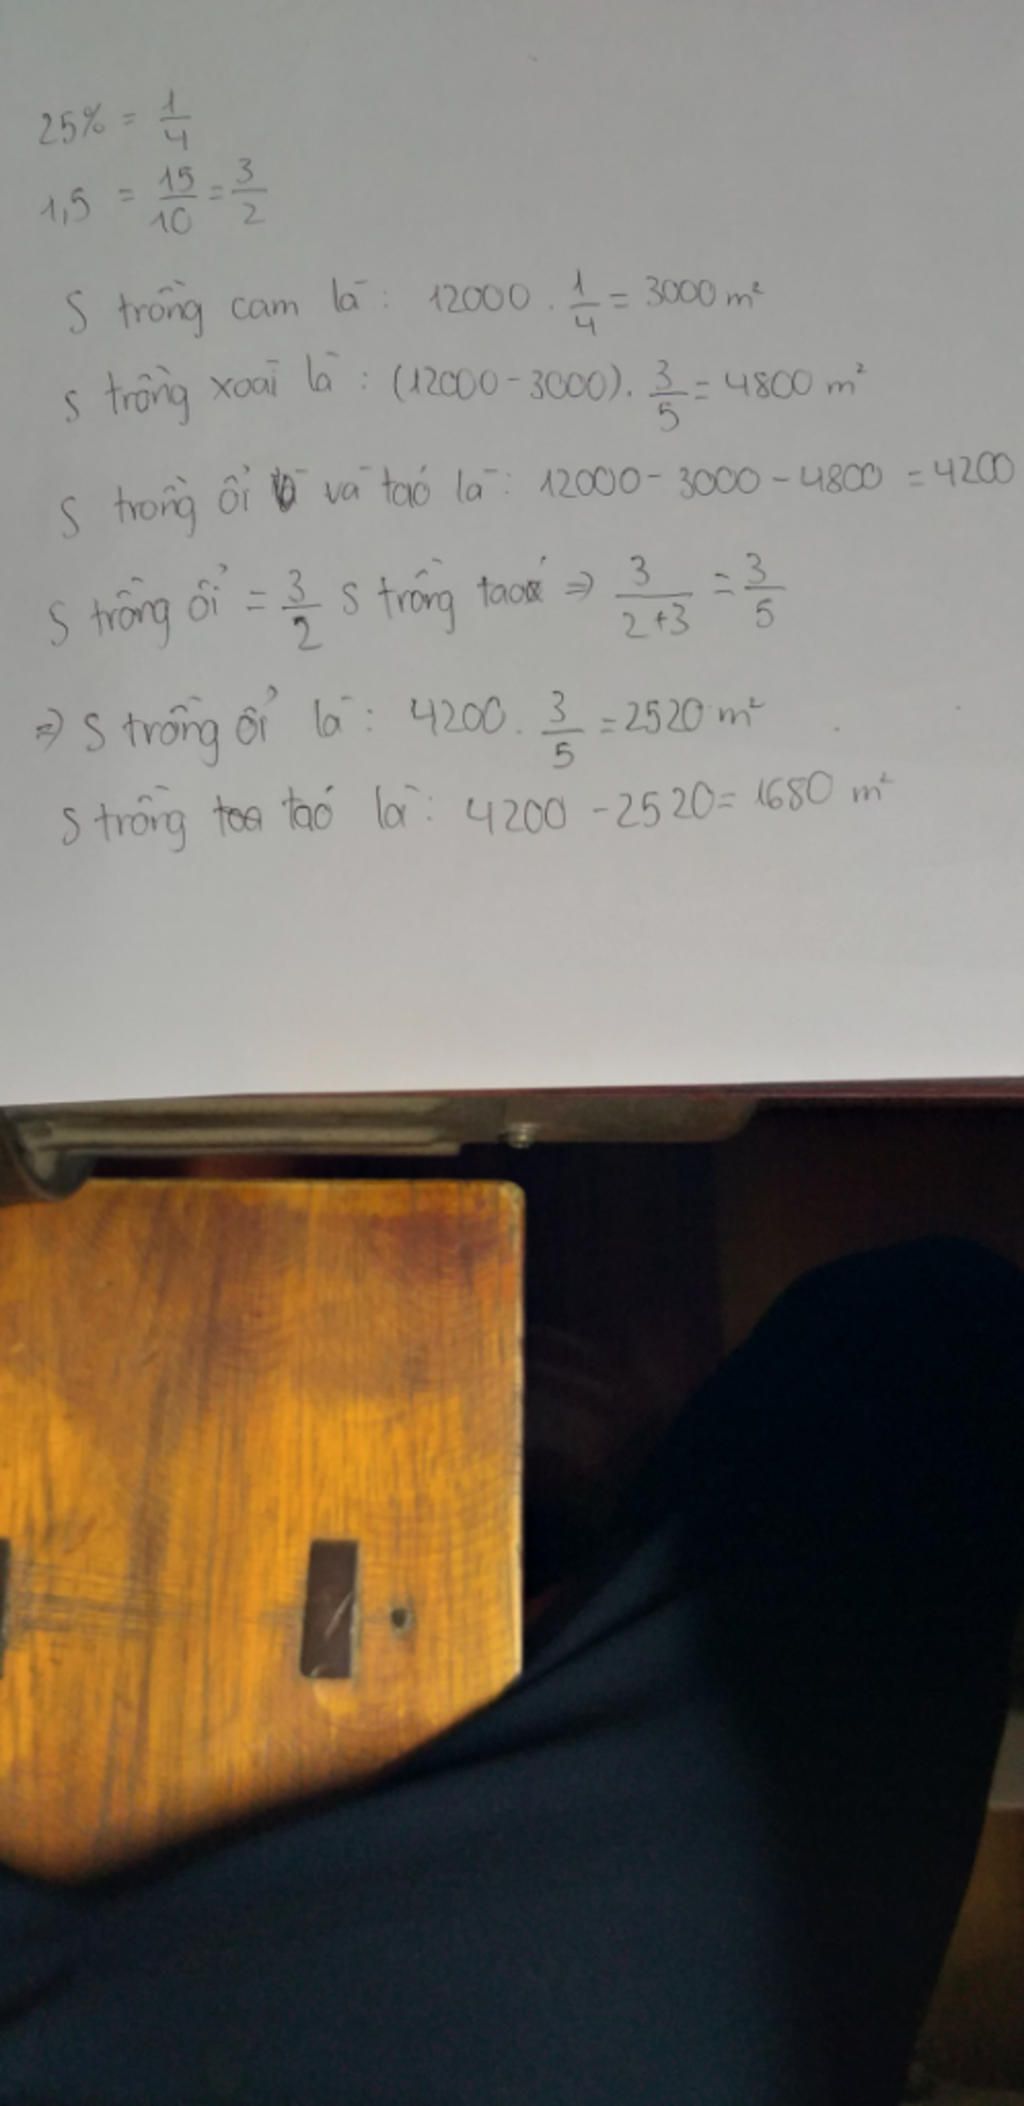 25% = 1/4
1,5 = 15/10 = 3/2
S trồng cam là: 12000 . 1/4 = 3000 m²
S trồng xoài là: (12000 - 3000) . 3/5 = 4800 m²
S trồng ổi và táo là: 12000 - 3000 - 4800 = 4200
S trồng ổi = 3/2 S trồng táo ⇒ 3/(2+3) = 3/5
⇒ S trồng ổi là: 4200 . 3/5 = 2520 m²
S trồng táo là: 4200 - 2520 = 1680 m²